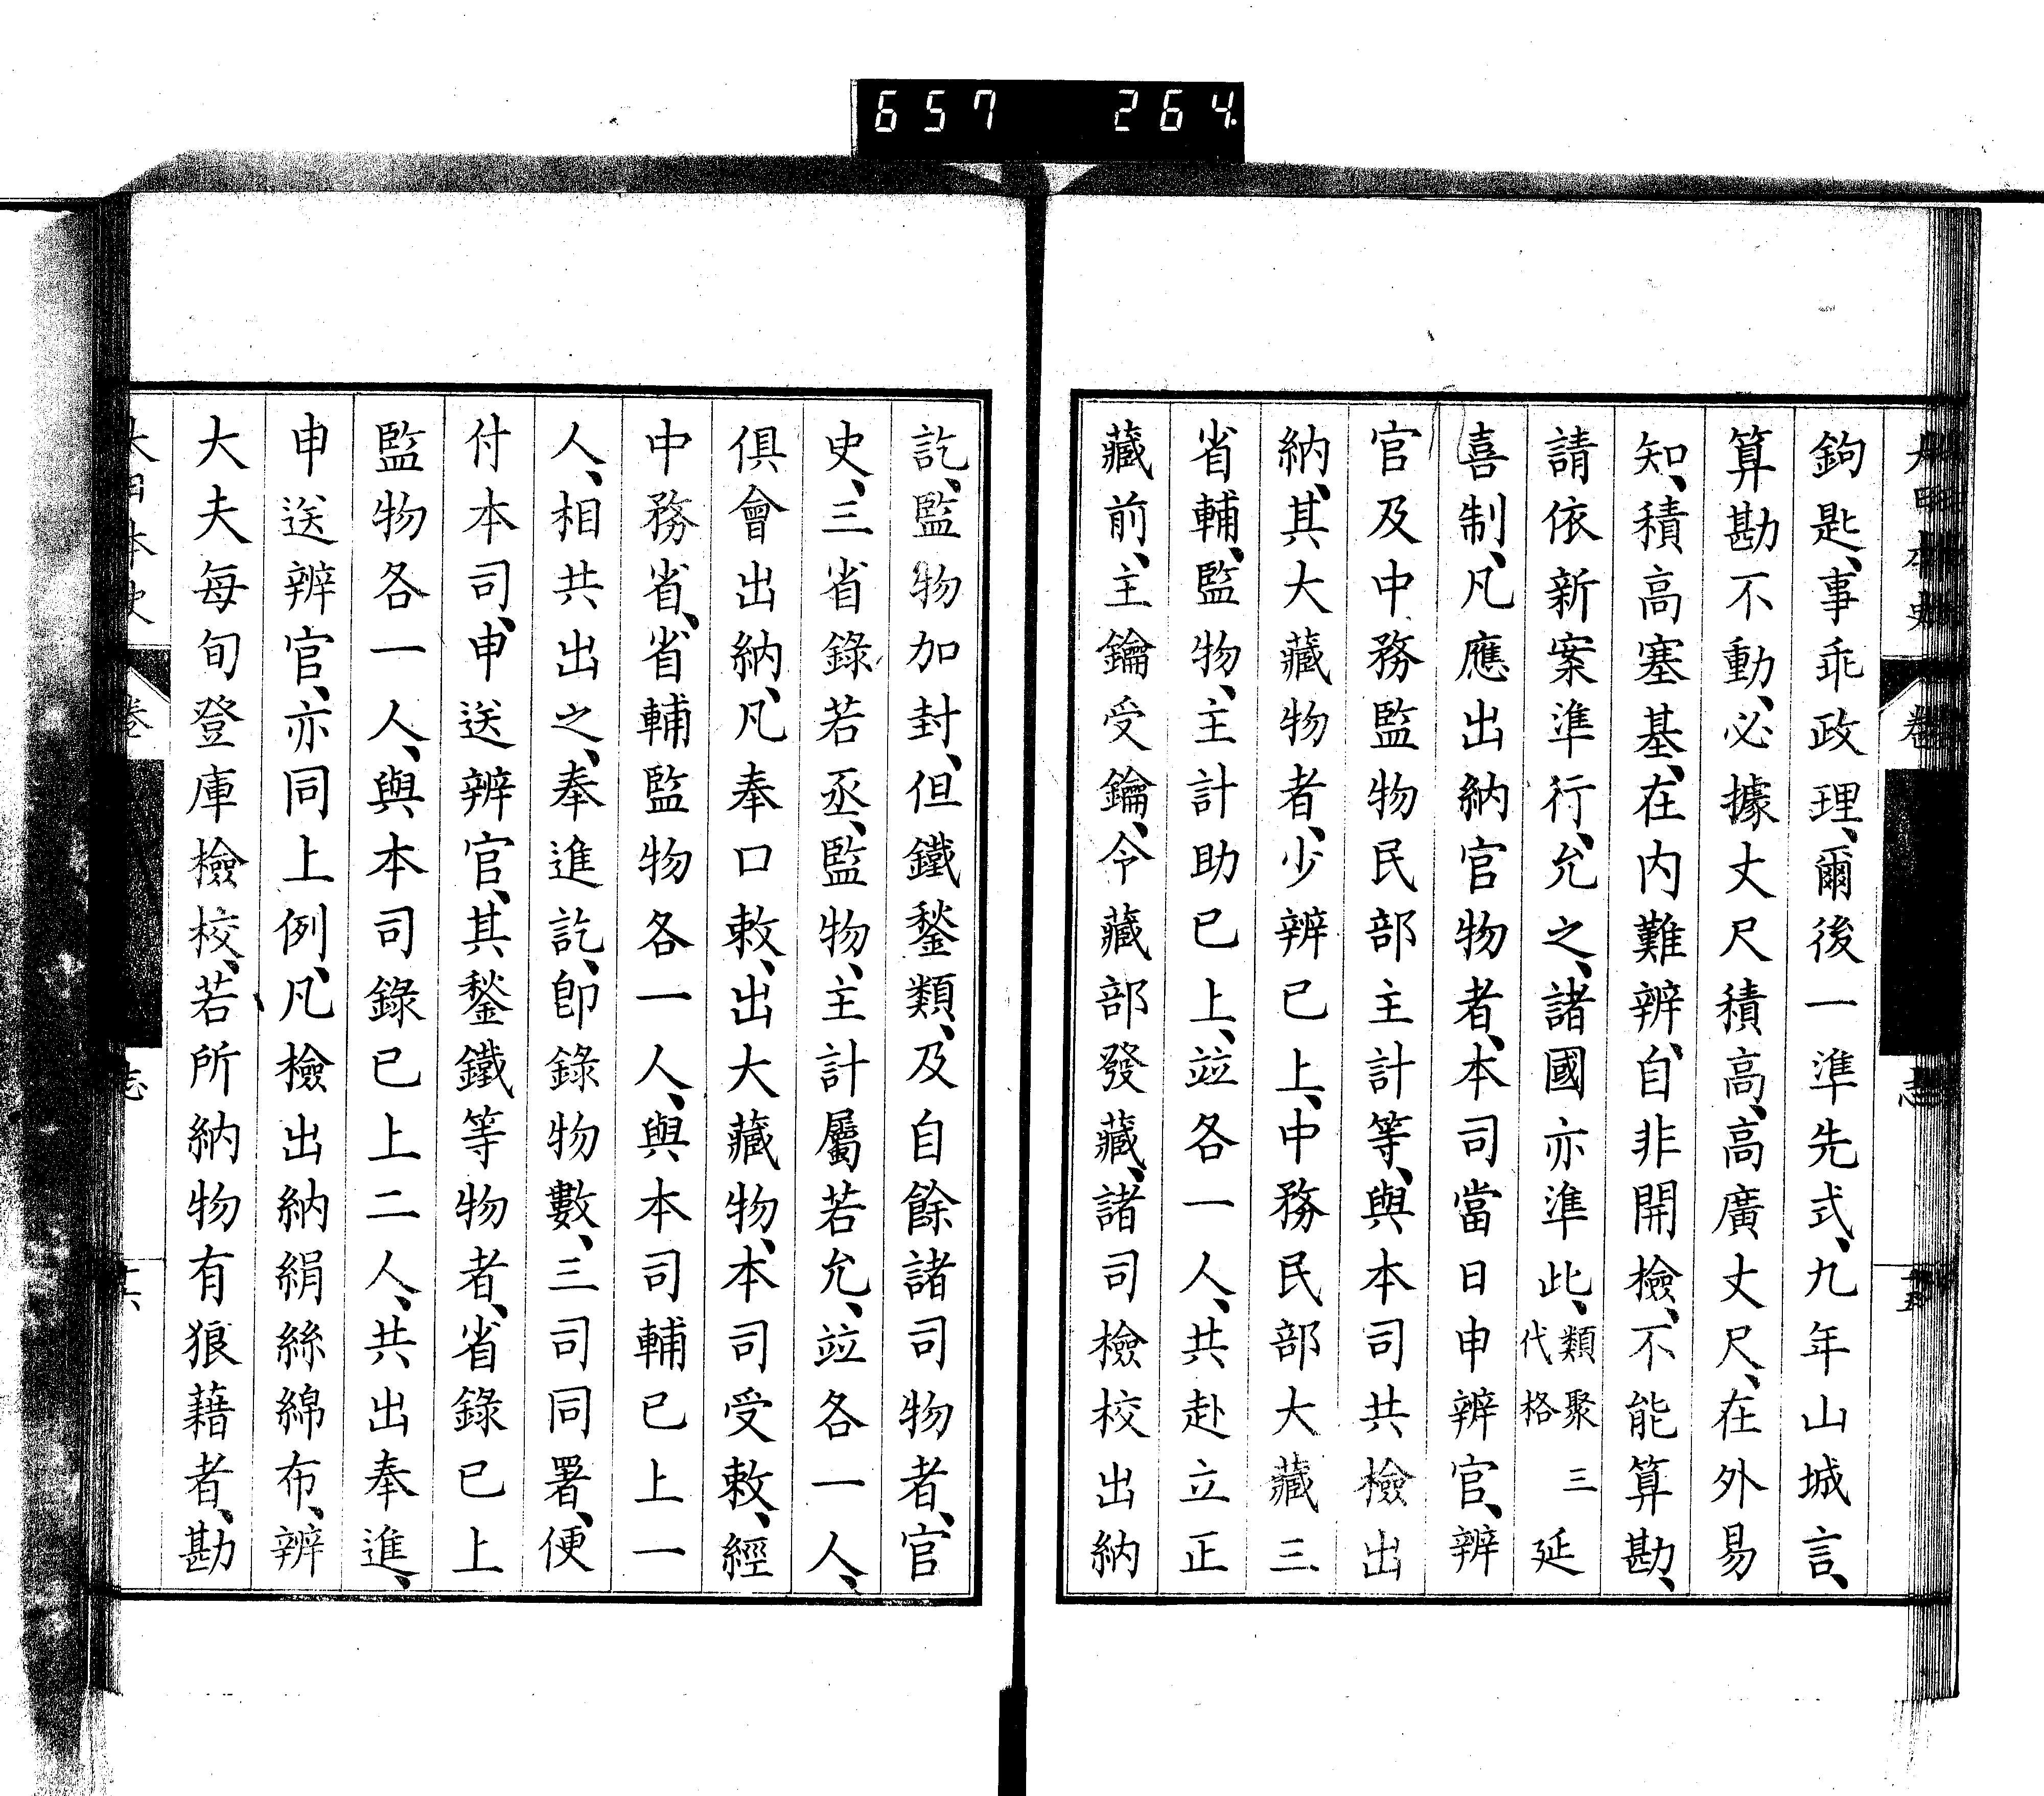 657 264
鉤匙、事乖政理、爾後一準先式、九年山城言、
算勘不動、必據丈尺積高、高廣丈尺、在外易
知、積高塞基、在内難辨、自非開檢、不能算勘、
請依新案準行、允之、諸國亦準此、類聚三代格延
喜制、凡應出納官物者、本司當日申辨官、辨
官及中務監物民部主計等、與本司共檢出
納、其大藏物者、少辨已上、中務民部大藏三
省輔、監物、主計助已上、竝各一人、共赴立正
藏前、主鑰受鑰、令藏部發藏、諸司檢校出納
訖、監物加封、但鐵鍫類、及自餘諸司物者、官
史、三省錄若丞、監物、主計屬若允、竝各一人、
俱會出納、凡奉口敕、出大藏物、本司受敕、經
中務省、省輔監物各一人、與本司輔已上一
人、相共出之、奉進訖、卽錄物數、三司同署、便
付本司、申送辨官、其鍫鐵等物者、省錄已上
監物各一人、與本司錄已上二人、共出奉進、
申送辨官、亦同上例、凡檢出納絹絲綿布、辨
大夫每旬登庫檢校、若所納物有狼藉者、勘
大日本史 卷 志